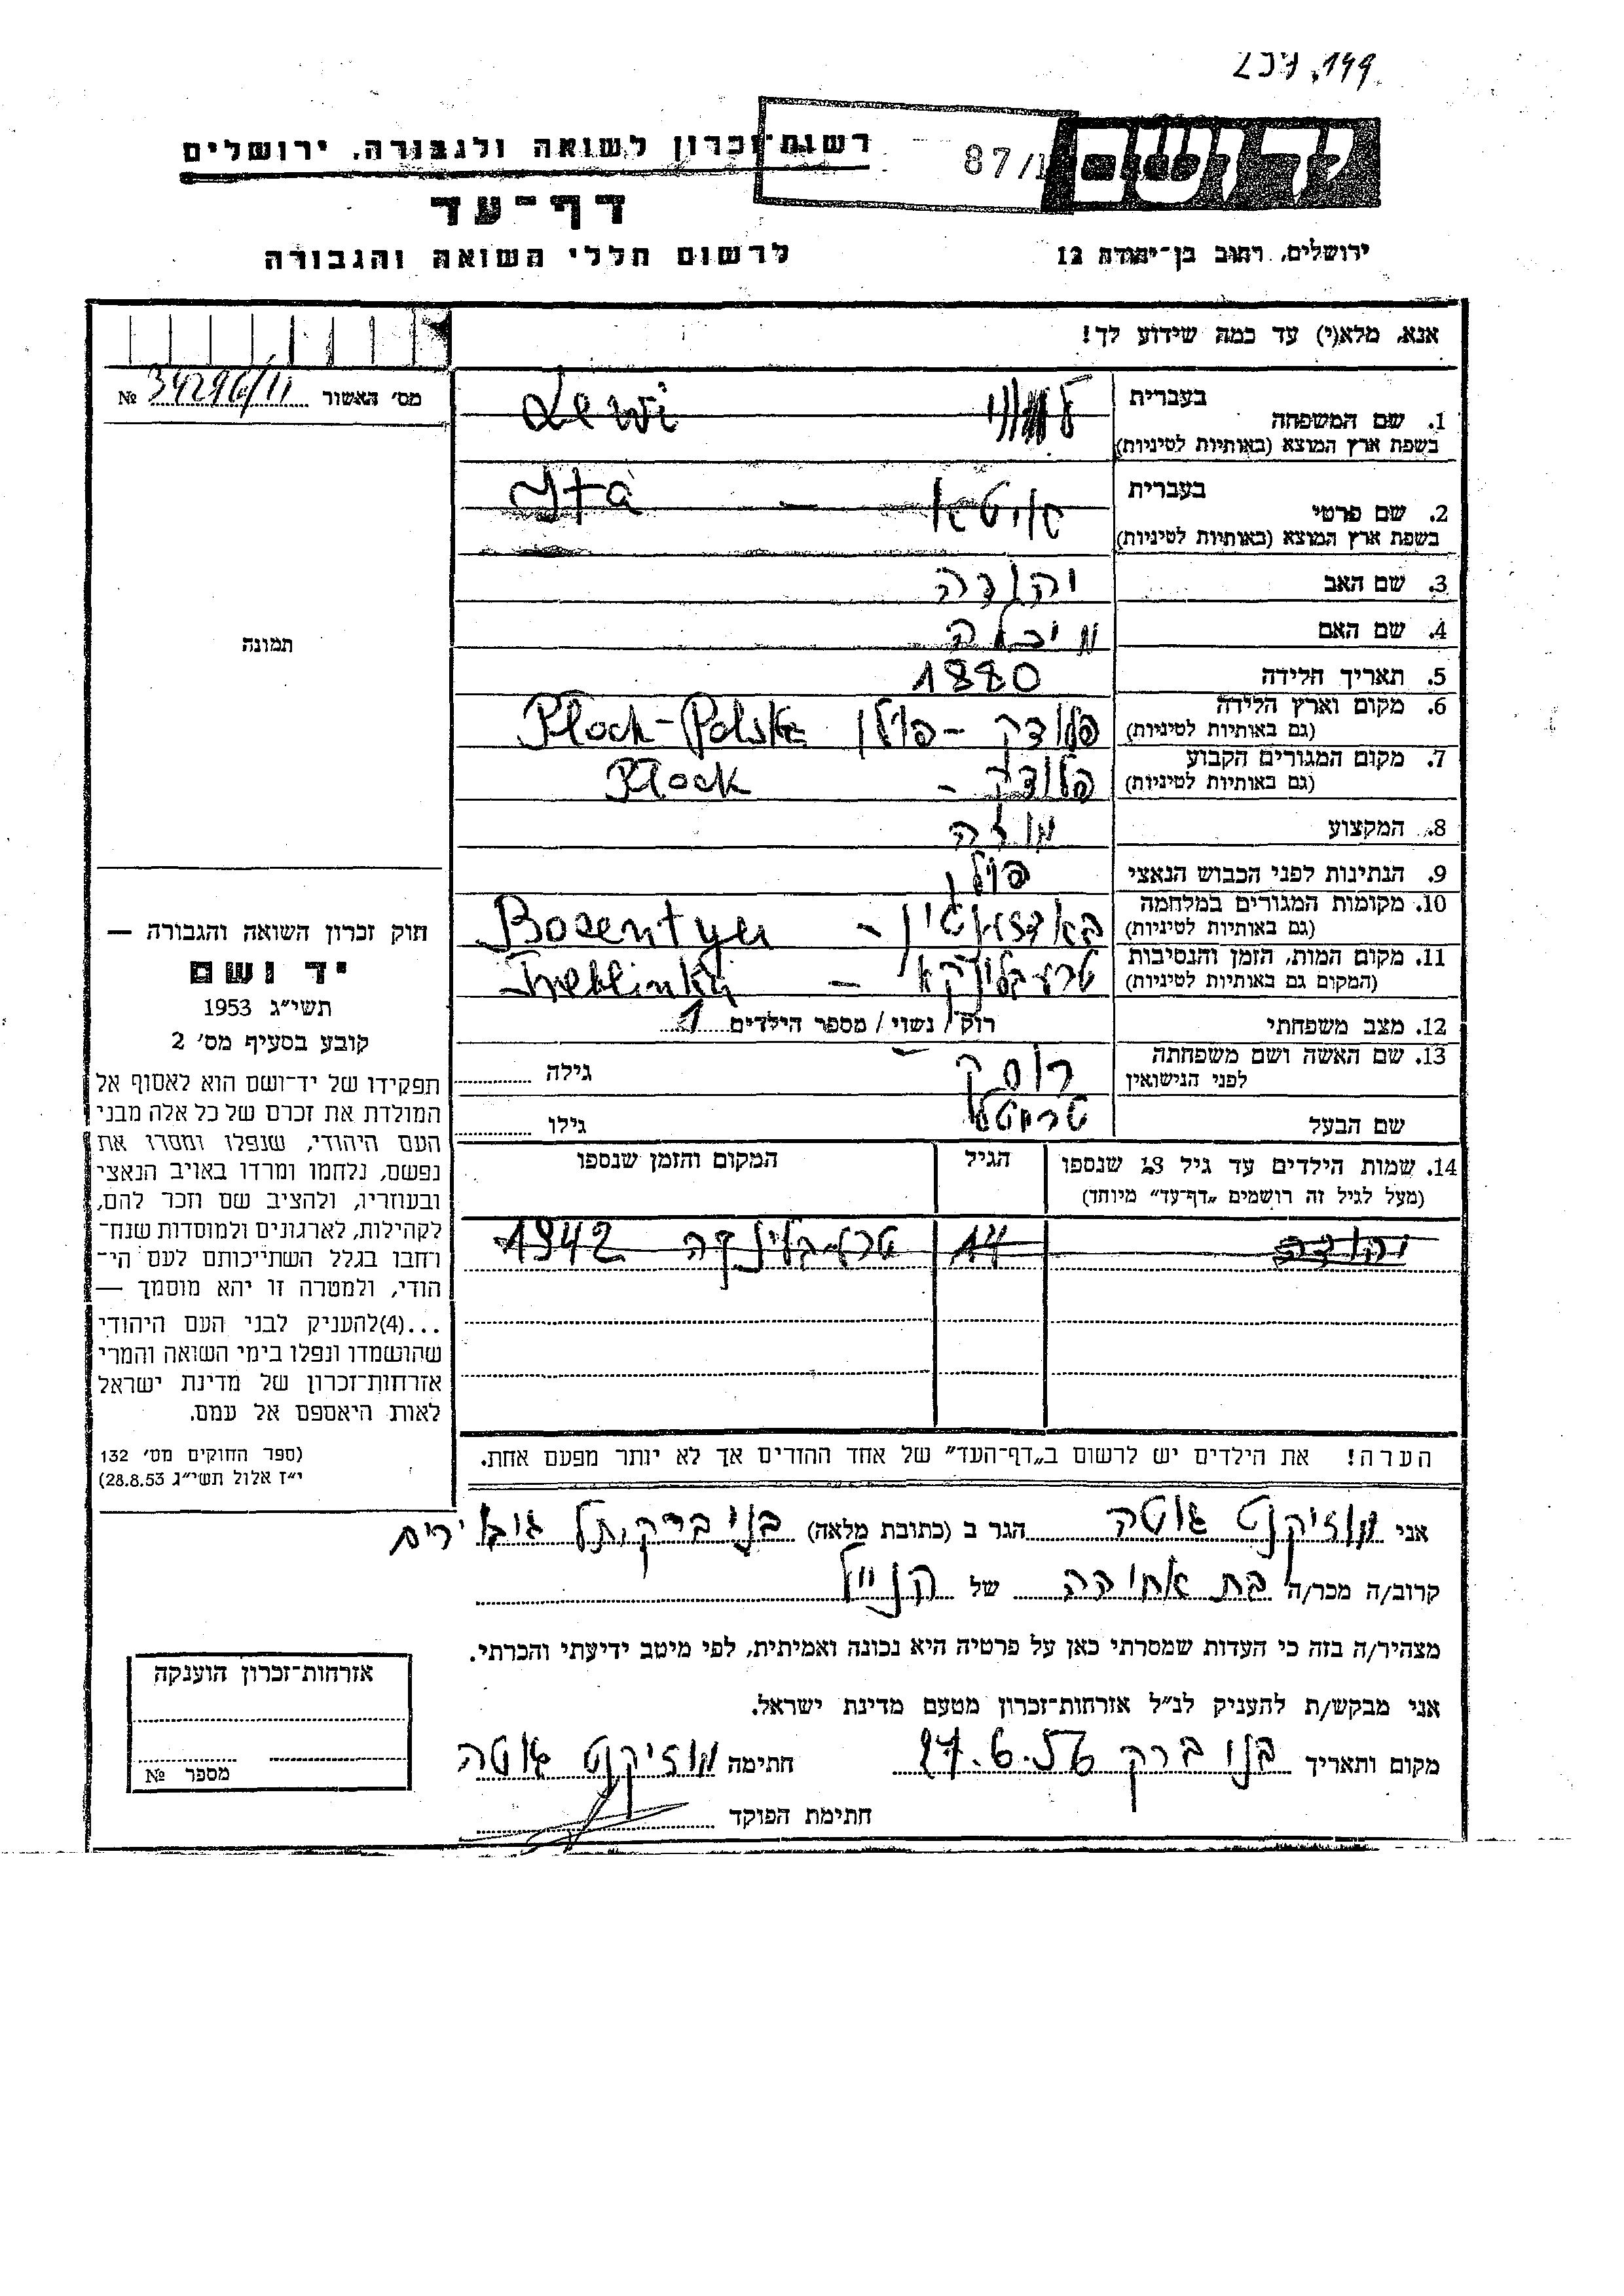 רשות־זכרון לשואה ולגבורה, ירושלים
87/1
דף־עד
לרשום חללי השואה והגבורה
ירושלים, רחוב בן־יהודה 12
אנא, מלא(י) עד כמה שידוע לך!
מס׳ האשור № 34296/11
1. שם המשפחה
בעברית
בשפת ארץ המוצא (באותיות לטיניות)
Lewi
2. שם פרטי
בעברית
בשפת ארץ המוצא (באותיות לטיניות)
Yta
3. שם האב יהודה
4. שם האם
5. תאריך הלידה 1880
6. מקום וארץ הלידה
(גם באותיות לטיניות)
פלוצק – פולין Plock-Polska
7. מקום המגורים הקבוע
(גם באותיות לטיניות)
פלוצק – Plock
8. המקצוע
9. הנתינות לפני הכבוש הנאצי פולין
10. מקומות המגורים במלחמה
(גם באותיות לטיניות)
11. מקום המות, הזמן והנסיבות
(המקום גם באותיות לטיניות)
טרעבלינקא – Treblinka
12. מצב משפחתי רוק / נשוי / מספר הילדים 1
13. שם האשה ושם משפחתה
לפני הנישואין
גילה
שם הבעל
גילו
14. שמות הילדים עד גיל 18 שנספו
(מעל לגיל זה רושמים „דף־עד״ מיוחד)
הגיל
המקום והזמן שנספו
יהודה 14 טרעבלינקה 1942
הערה! את הילדים יש לרשום ב„דף־העד״ של אחד ההורים אך לא יותר מפעם אחת.
תמונה
חוק זכרון השואה והגבורה —
יד ושם
תשי״ג 1953
קובע בסעיף מס׳ 2
תפקידו של יד־ושם הוא לאסוף אל
המולדת את זכרם של כל אלה מבני
העם היהודי, שנפלו ומסרו את
נפשם, נלחמו ומרדו באויב הנאצי
ובעוזריו, ולהציב שם וזכר להם,
לקהילות, לארגונים ולמוסדות שנח־
רחבו בגלל השתייכותם לעם הי־
הודי, ולמטרה זו יהא מוסמך —
...(4)להעניק לבני העם היהודי
שהושמדו ונפלו בימי השואה והמרי
אזרחות־זכרון של מדינת ישראל
לאות היאספם אל עמם.
(ספר החוקים מס׳ 132
י״ז אלול תשי״ג 28.8.53)
אני מוזיקנט גוטה הגר ב (כתובת מלאה) בני ברק
קרוב/ה מכר/ה בת אחותה של הנ״ל
מצהיר/ה בזה כי העדות שמסרתי כאן על פרטיה היא נכונה ואמיתית, לפי מיטב ידיעתי והכרתי.
אני מבקש/ת להעניק לנ״ל אזרחות־זכרון מטעם מדינת ישראל.
מקום ותאריך בני ברק 27.6.56 חתימה מוזיקנט גוטה
חתימת הפוקד
אזרחות־זכרון הוענקה
מספר №